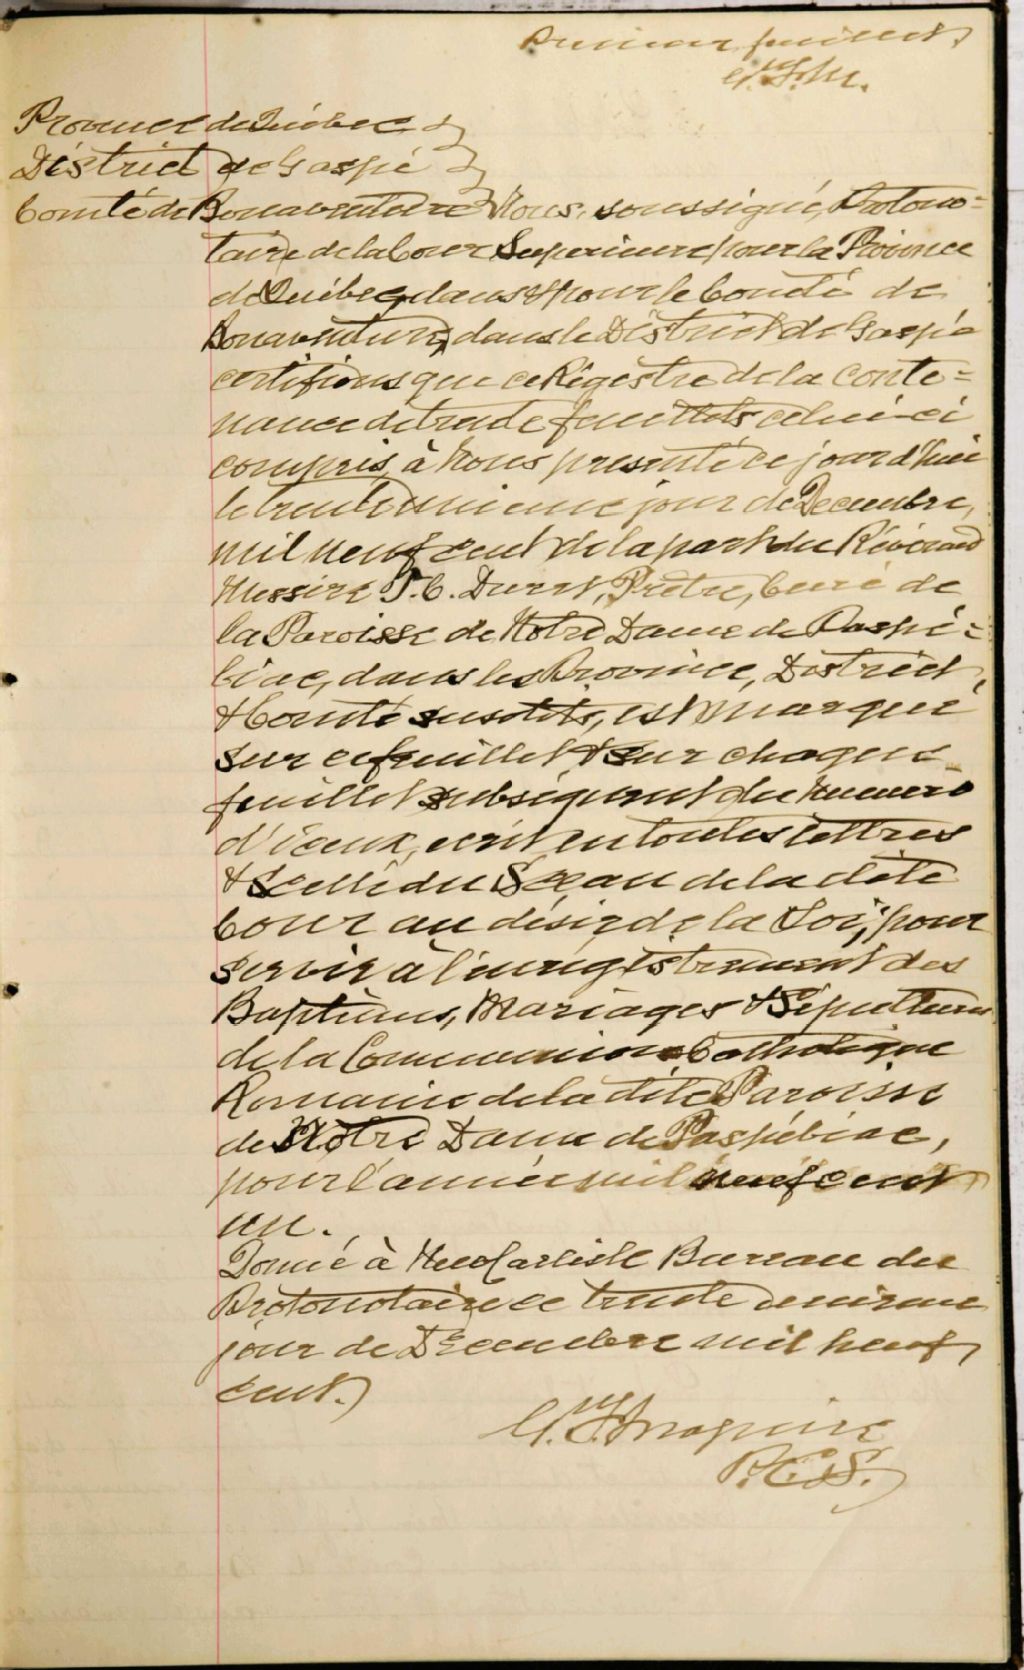 Premier feuillet
Province de Québec
District de Gaspé
Comté de Bonaventure Nous, soussigné, Protono=
taire de la Cour Superieure pour la Province
de Québec, dans & pour le Comté de
Bonaventure, dans le District de Gaspé
certifions que ce Régistre de la conte=
nance de trente feuillets celui-ci
compris, à nous presenté ce jourd'hui
le trente unieme jour de Decembre,
mil neuf cent de la part du Révérend
Messire, Prêtre, Curé de
la Paroisse de Notre Dame de Paspé=
biac, dans les Province, District,
& Comté susdits, est marqué
sur ce feuillet & sur chaque
feuillet subséquent du numero
d'iceux, écrit en toutes lettres
& Scellé du Sceau de la dite
Cour au désir de la Loi, pour
servir à l'enrégistrement des
Baptêmes, Mariages & Sépultures
de la Communion Catholique
Romaine de la dite Paroisse
de Notre Dame de Paspébiac,
pour l'année mil neuf cent
un.
Donné à New Carlisle Bureau du
Protonotaire ce trente unieme
jour de Decembre mil neuf
cent.
P.C.S.